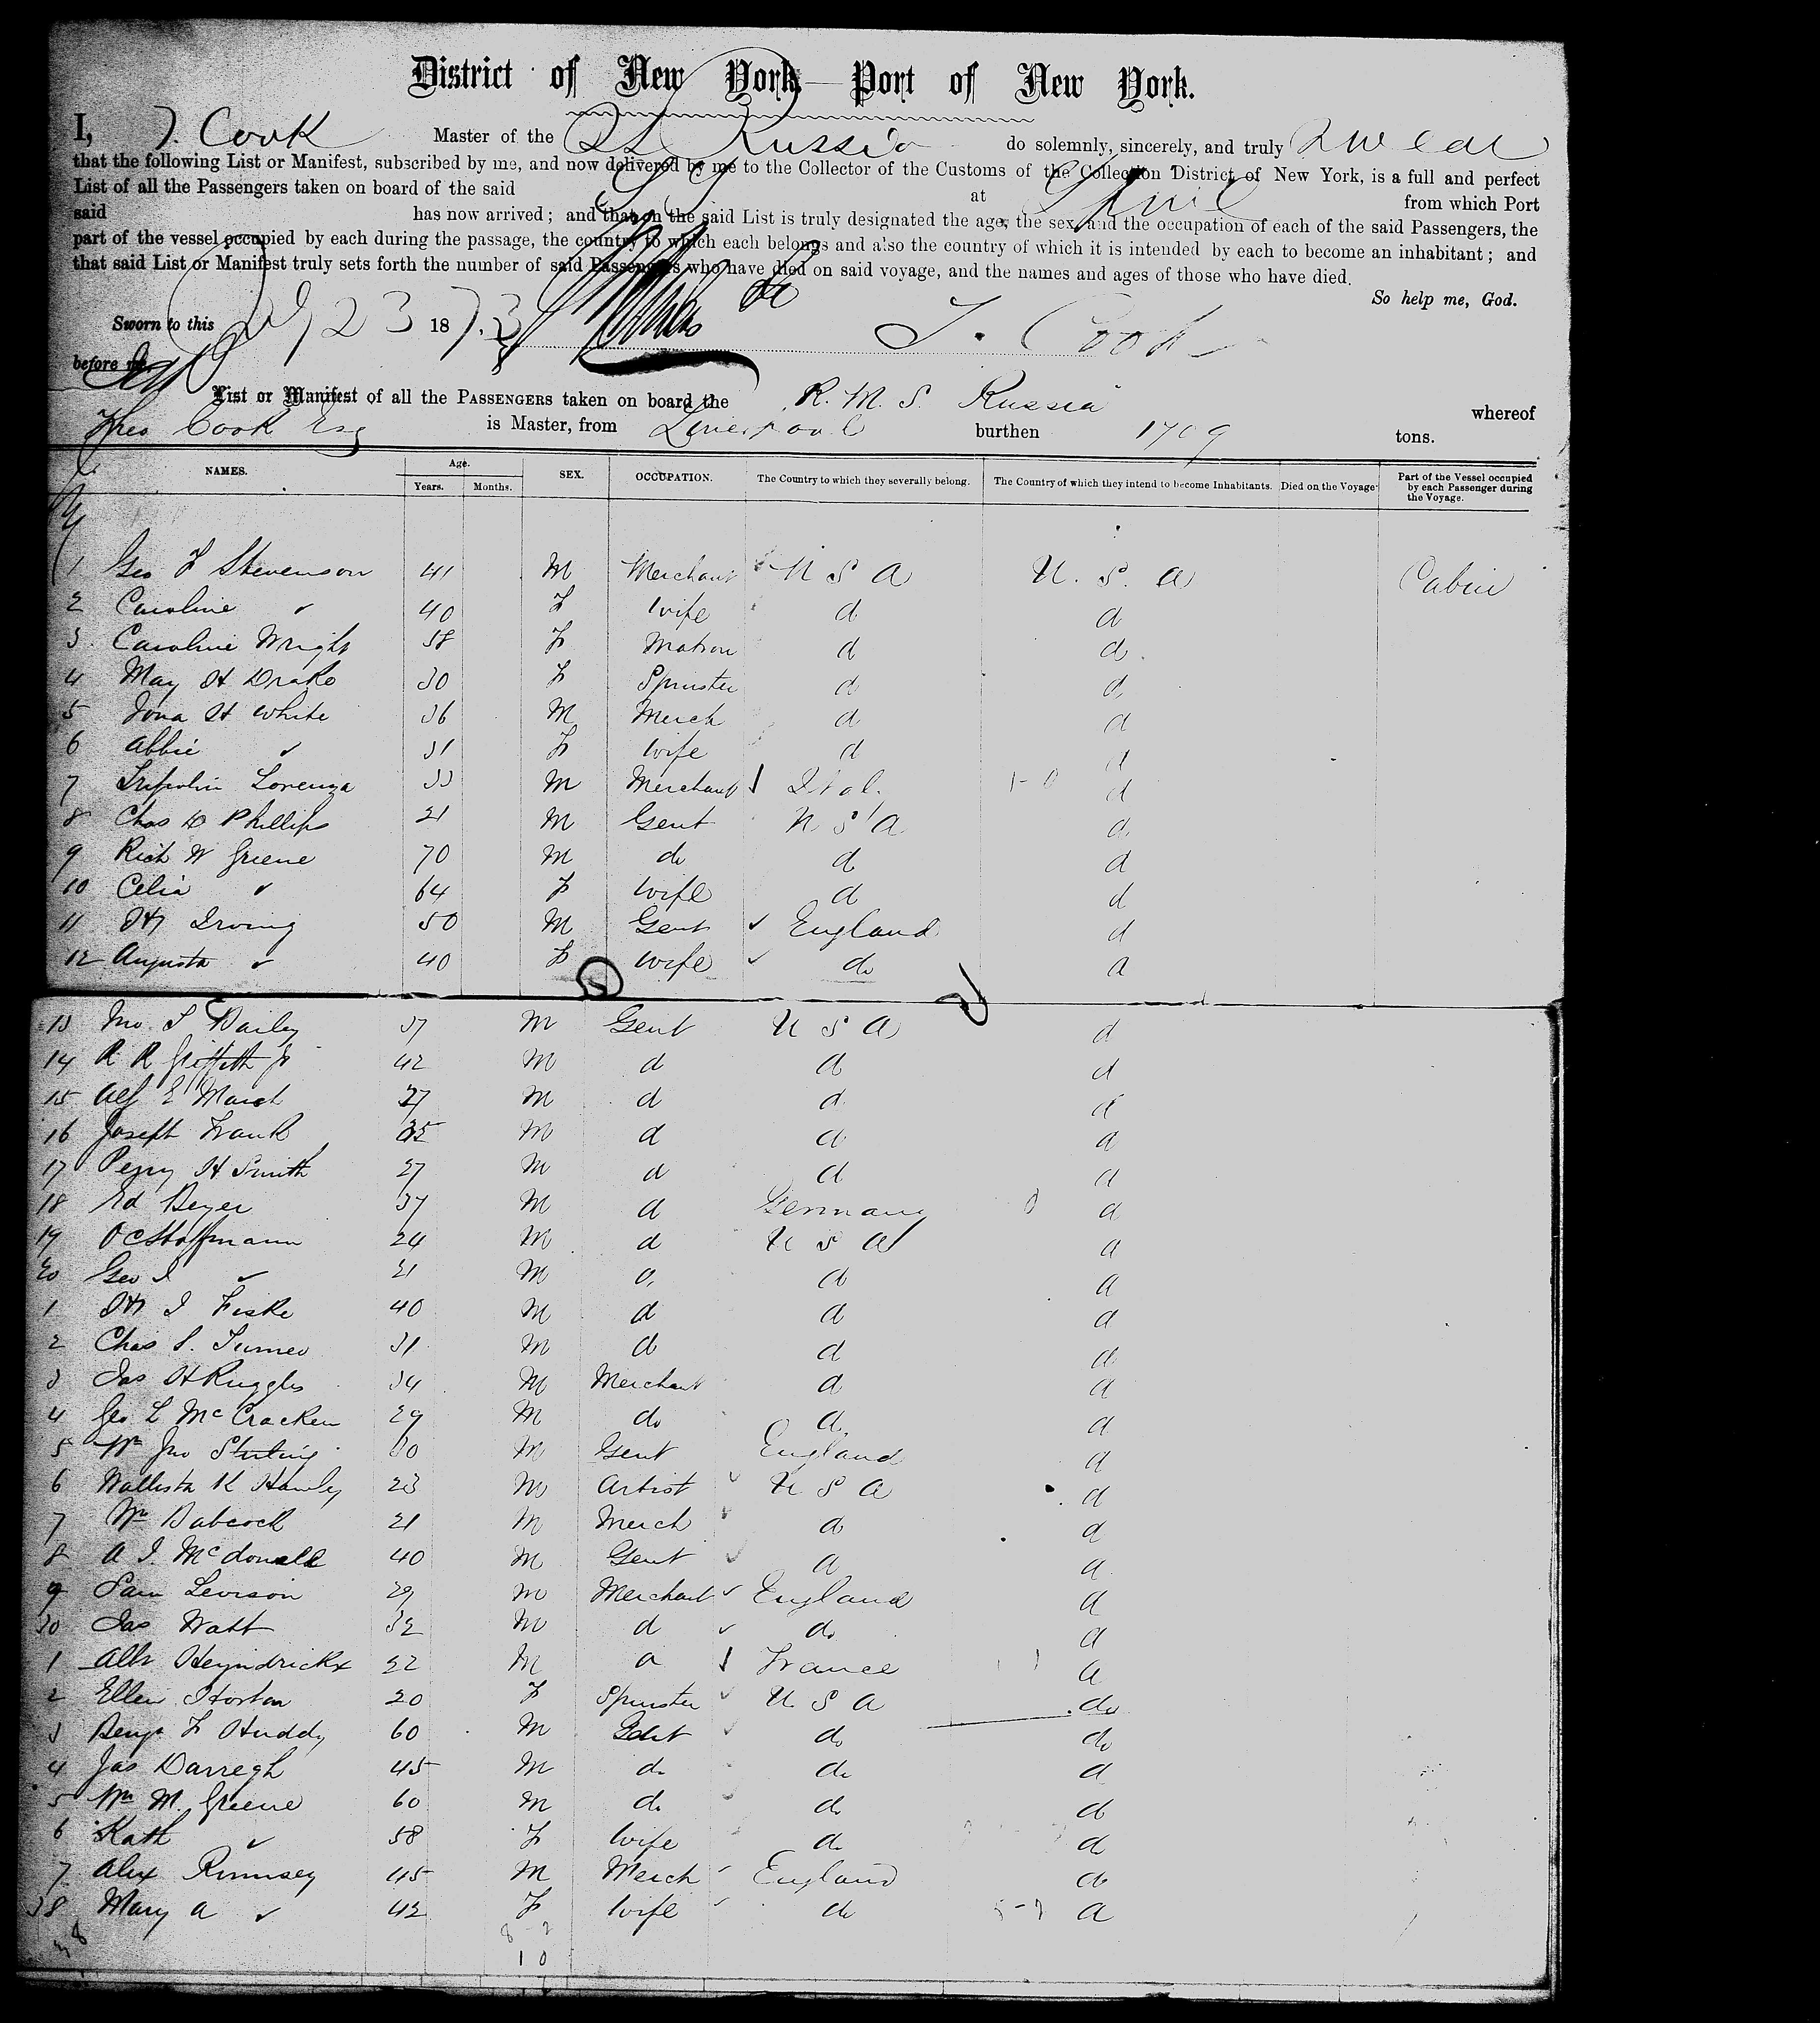 District of New York — Port of New York.
I, T. Cook Master of the SS Russia do solemnly, sincerely, and truly swear
that the following List or Manifest, subscribed by me, and now delivered by me to the Collector of the Customs of the Collection District of New York, is a full and perfect
List of all the Passengers taken on board of the said SS at L'pool from which Port
said has now arrived; and that on the said List is truly designated the age, the sex, and the occupation of each of the said Passengers, the
part of the vessel occupied by each during the passage, the country to which each belongs and also the country of which it is intended by each to become an inhabitant; and
that said List or Manifest truly sets forth the number of said Passengers who have died on said voyage, and the names and ages of those who have died.
So help me, God.
Sworn to this 23 187.3 T. Cook
before me
List or Manifest of all the PASSENGERS taken on board the R. M. S. Russia whereof
Theo Cook Esq is Master, from Liverpool burthen 1709 tons.
NAMES. Age. Years. Months. SEX. OCCUPATION. The Country to which they severally belong. The Country of which they intend to become Inhabitants. Died on the Voyage Part of the Vessel occupied by each Passenger during the Voyage.
1 Geo F Stevenson 41 M Merchant U S A U. S. A Cabin
2 Caroline " 40 F Wife d d
3. Caroline Wright 58 F Matron d d
4 May H Drake 30 F Spinster d d
5 Jona H White 36 M Merch d d
6 Abbie " 31 F Wife d d
7 Lorenza 33 M Merchant Ital. d
8 Chas D Phillips 21 M Gent U S A d
9 Rich W Greene 70 M do d d
10 Celia " 64 F Wife d d
11 Hy Irving 50 M Gent England d
12 Augusta " 40 F Wife do d
13 Jno. S Bailey 37 M Gent U S A d
14 R R Griffith Jr 42 M d d d
15 Alf E March 27 M d d d
16 Joseph Frank 35 M d d d
17 Perry H Smith 27 M d d d
18 Ed Beyer 37 M d Germany d
19 O C Hoffmann 24 M d U S A d
20 Geo I " 21 M d d d
1 Hy I Fiske 40 M d d d
2 Chas S. Turner 31 M d d d
3 Jas H Ruggles 34 M Merchant d d
4 Geo L McCracken 29 M do d d
5 Wm Jno Stirling 30 M Gent England d
6 K Hawley 23 M Artist U S A d
7 Wm Babcock 21 M Merch d d
8 A J. McDonald 40 M Gent d d
9 Sam Levison 29 M Merchant England d
30 Jas Watt 32 M d do d
1 Alb Heyndrickx 22 M d France d
2 Ellen Horton 20 F Spinster U S A do
3 Benj. F Huddy 60 M Gent do do
4 Jas Darregh 45 M do do d
5 Wm M. Greene 60 M do do d
6 Kath " 58 F Wife do d
7 Alex Rumsey 45 M Merch England d
38 Mary A " 42 F Wife do d
38 10